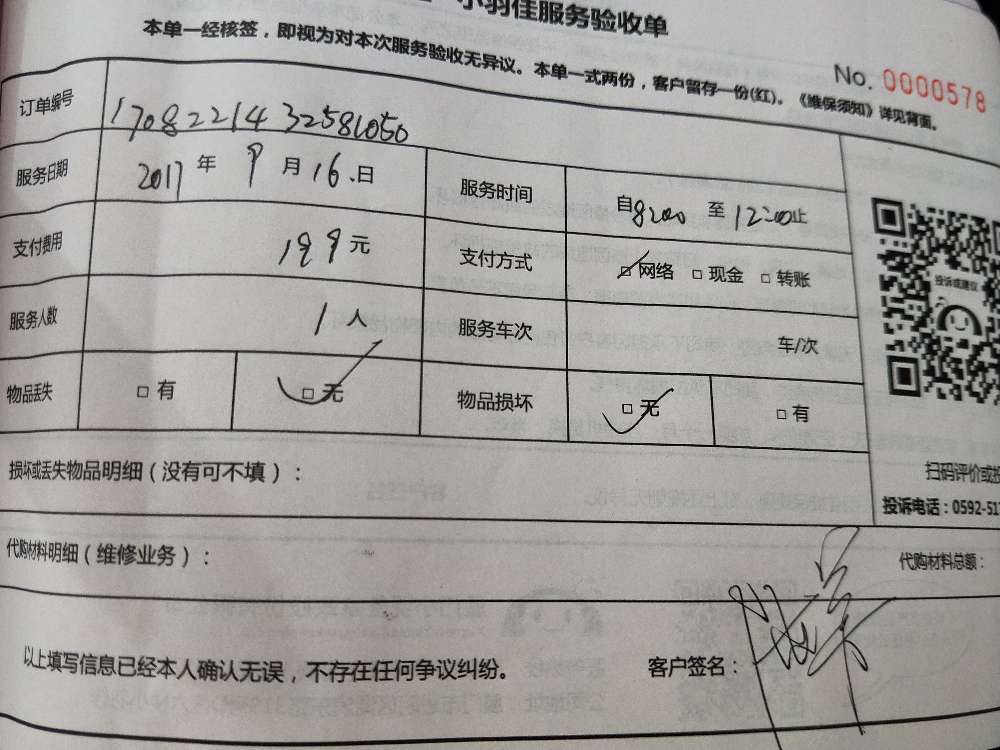 小羽佳服务验收单
本单一经核签，即视为对本次服务验收无异议。本单一式两份，客户留存一份(红)。《维保须知》详见背面。
No. 0000578
订单编号 17082214 32581050
服务日期 2017 年 9 月 16 日 服务时间 自 8:00 至 12:00 止
支付费用 199 元 支付方式 □ 网络 □ 现金 □ 转账
服务人数 1 人 服务车次 车/次
物品丢失 □ 有 □ 无 物品损坏 □ 无 □ 有
投诉或建议
扫码评价或投
投诉电话：0592-51
损坏或丢失物品明细（没有可不填）：
代购材料明细（维修业务）： 代购材料总额：
以上填写信息已经本人确认无误，不存在任何争议纠纷。 客户签名：